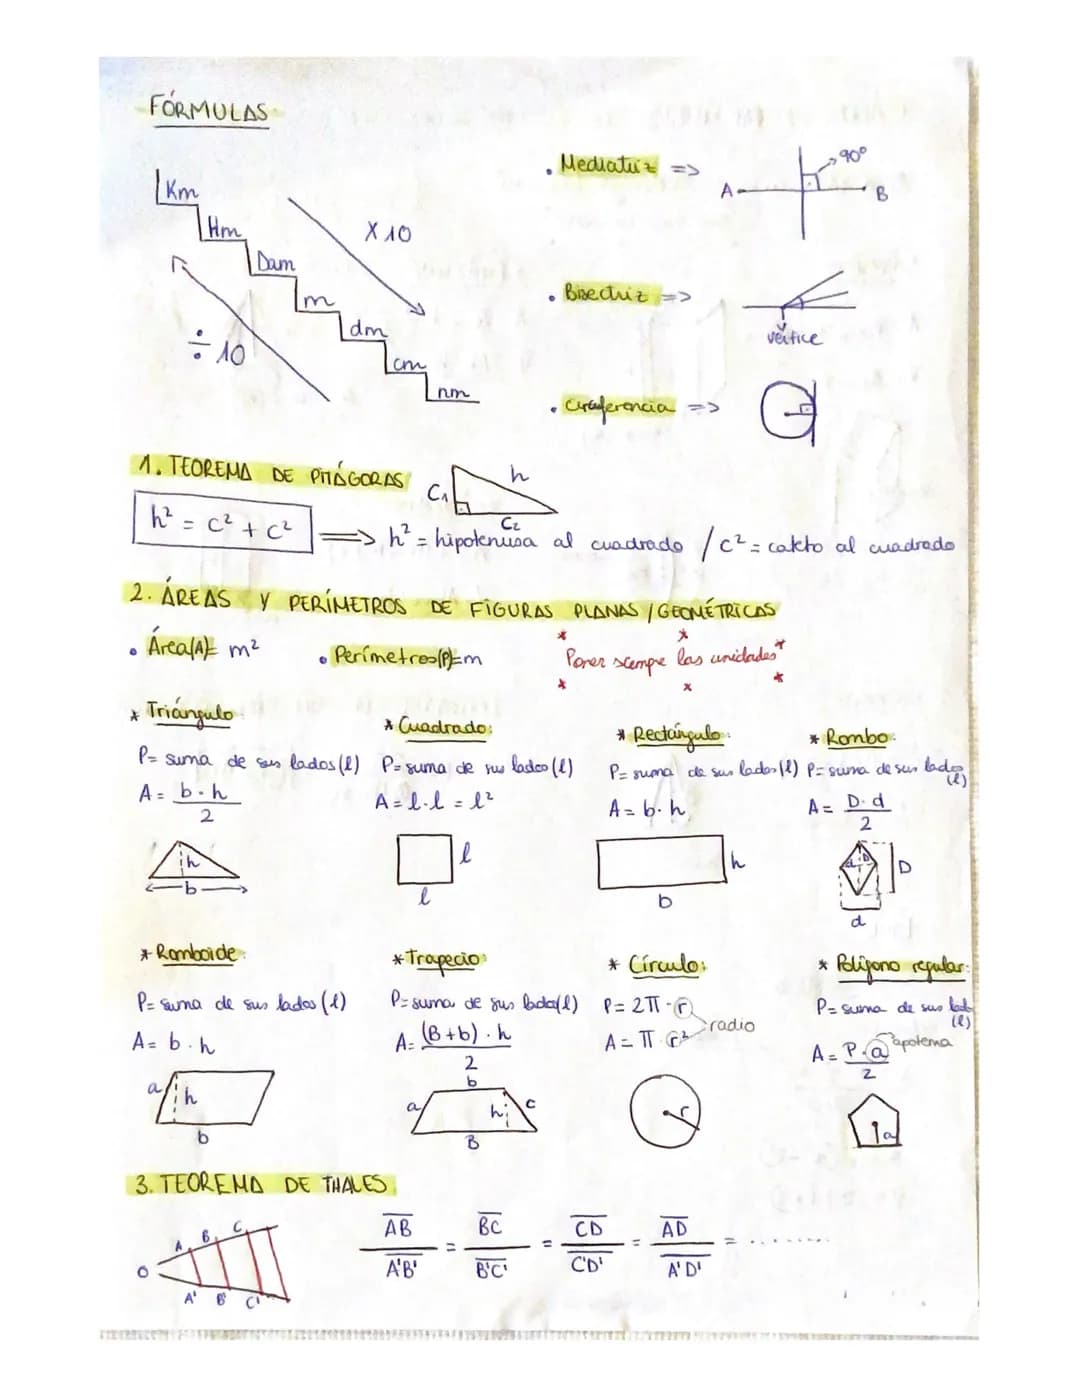 FÓRMULAS
Km
Hm
Dam
m
dm
cm
mm
X 10
÷ 10
• Mediatriz =>
A
B
90º
• Bisectriz =>
vértice
• Circunferencia =>
1. TEOREMA DE PITÁGORAS
C₁
h
C₂
h² = c² + c² => h² = hipotenusa al cuadrado / c² = cateto al cuadrado
2. ÁREAS Y PERÍMETROS DE FIGURAS PLANAS / GEOMÉTRICAS
• Área(A)= m²
• Perímetros(P)=m
Poner siempre las unidades
* Triángulo:
P= suma de sus lados (l)
A = b · h / 2
h
b
* Cuadrado:
P= suma de sus lados (l)
A = l · l = l²
l
l
* Rectángulo:
P= suma de sus lados (l)
A = b · h
h
b
* Rombo:
P= suma de sus lados (l)
A = D · d / 2
d
D
D
d
* Romboide:
P= suma de sus lados (l)
A = b · h
a
h
b
* Trapecio:
P= suma de sus lados (l)
A = (B + b) · h / 2
b
a
h
c
B
* Círculo:
P = 2π · r
A = π · r²
radio
r
* Polígono regular:
P= suma de sus lad
(l)
A = P · a / 2
apotema
a
3. TEOREMA DE THALES
O
A
B
C
A'
B'
C'
AB / A'B' = BC / B'C' = CD / C'D' = AD / A'D' = ........